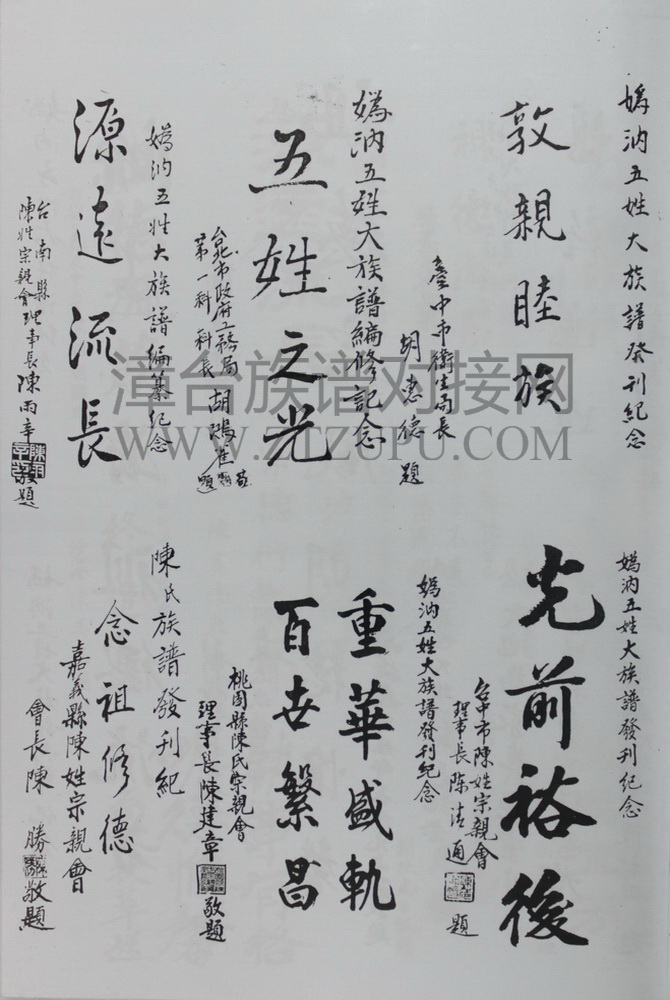 媯汭五姓大族譜發刊紀念
敦親睦族
臺中市衛生局長
胡惠德 題
媯汭五姓大族譜編修記念
五姓之光
台北市政府工務局
第一科 科長 胡鴻
媯汭五姓大族譜編纂紀念
源遠流長
台南縣
陳姓宗親會理事長陳雨辛
題
媯汭五姓大族譜發刊紀念
光前裕後
台中市陳姓宗親會
理事長陳清通 題
媯汭五姓大族譜發刊紀念
重華盛軌
百世繁昌
桃園縣陳氏宗親會
理事長陳建章 敬題
陳氏族譜發刊紀
念祖修德
嘉義縣陳姓宗親會
會長陳勝 敬題
漳台族谱对接网
WWW.ZTZUPU.COM